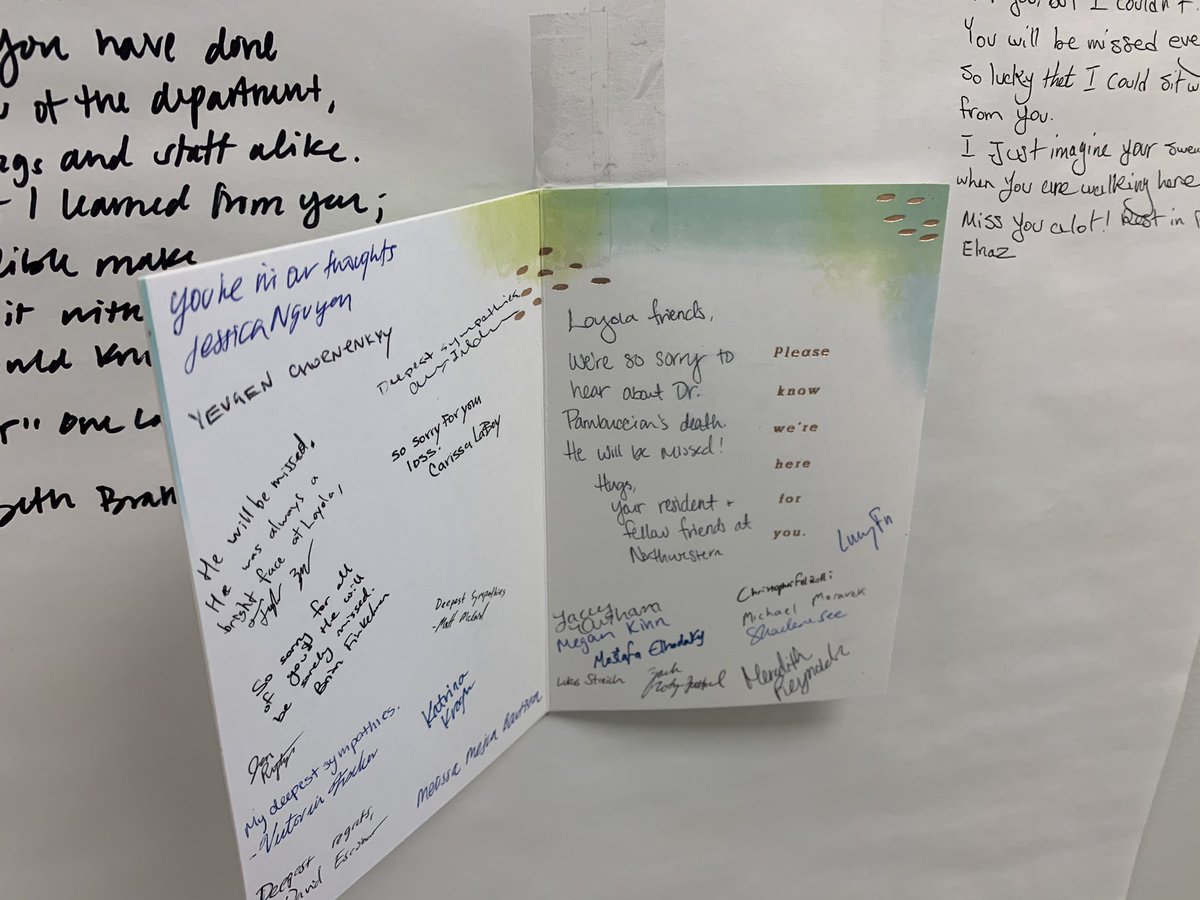 you have done
of the department,
and staff alike.
I learned from you;
make
it with
one
Beth
you, but I couldn't.
You will be missed
so lucky that I could sit
from you.
I Just imagine your
when you are walking here
Miss you alot! Rest in
Elnaz
You're in our thoughts
Jessica Nguyen
YEVGEN CHORNENKYY
Deepest sympathies
so sorry for your
loss.
Carissa LaBoy
He will be missed,
He was always a
bright face at Loyola,
So sorry for all
of you. He will
be surely missed.
Brian Finkelman
Deepest Sympathies
-Matt
Jen
Katrina
Krogh
My deepest sympathies.
-Victoria
Melissa Mejia Bautista
Deepest regrets,
David Escobar
Loyola friends,
We're so sorry to
hear about Dr.
Pambuccian's death.
He will be missed!
Hugs,
your resident +
fellow friends at
Northwestern
Please
know
we're
here
for
you.
Lucy
Lacey
Megan Kinn
Mostafa
Lukas Streich
Jack
Christopher
Michael Moravek
Sharlene See
Meredith
Reynolds